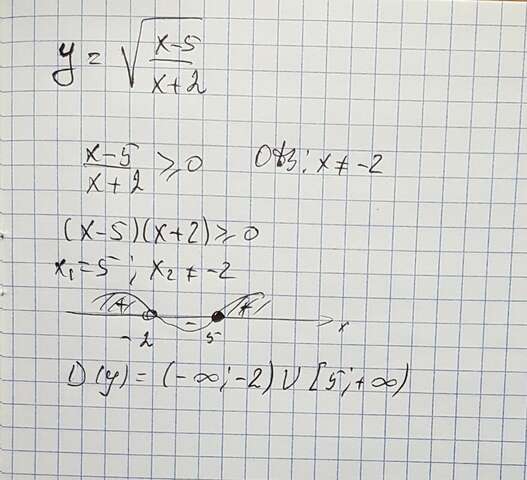 y = √((x-5)/(x+2))
(x-5)/(x+2) ≥ 0 ОДЗ: x ≠ -2
(x-5)(x+2) ≥ 0
x₁=5 ; x₂ ≠ -2
+ - + x
-2 5
D(y) = (-∞; -2) U [5; +∞)